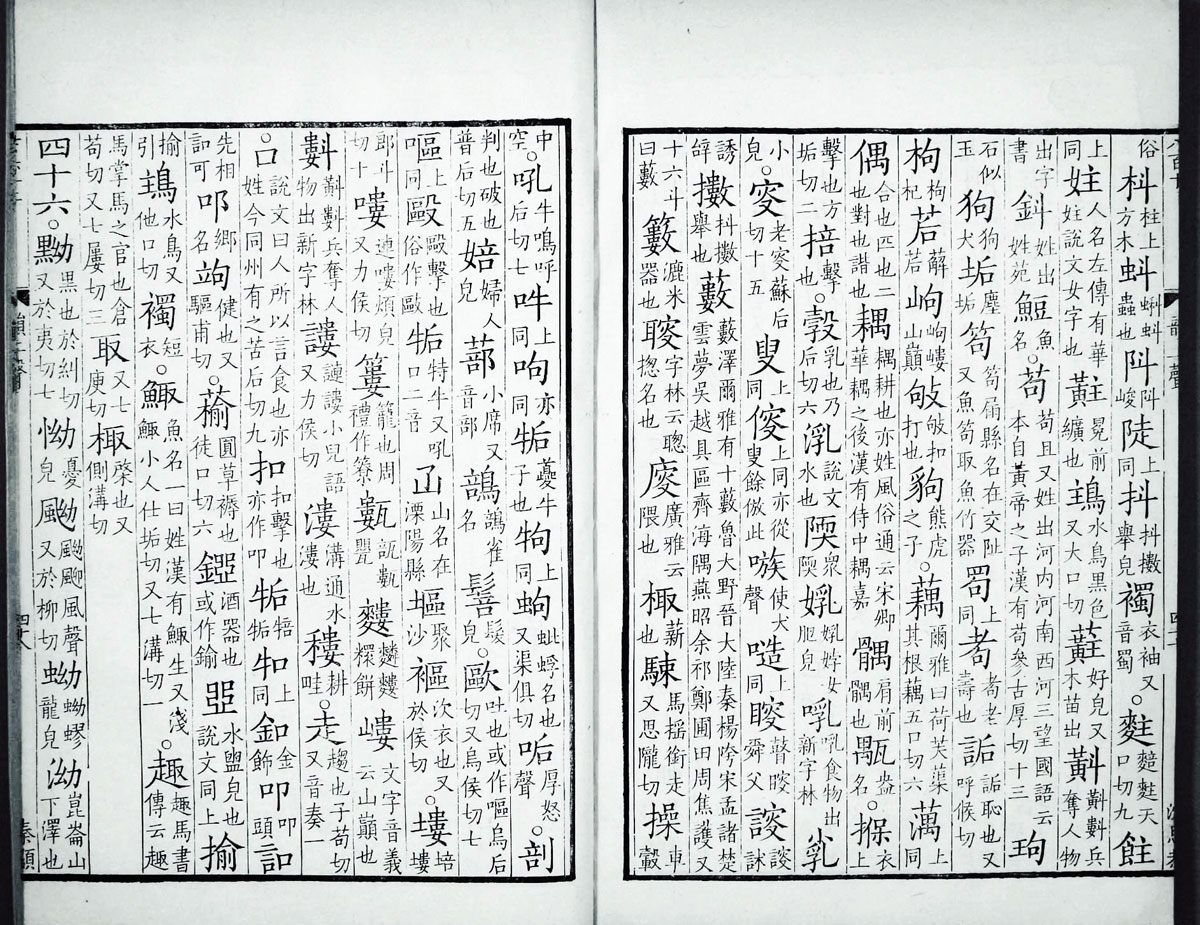 俗枓柱上方木蚪蝌蚪蟲也阧阧峻陡上同抖抖擻舉皃襡衣袖又音蜀。天口切九飳
上同妵人名左傳有華妵說文女字也黈冕前纊也水鳥黑色又大口切蘣好皃又木苗出兵奪人物
出字書鈄姓出姓苑魚名。苟苟且又姓出河內河南西河三望國語云本自黃帝之子漢有苟參古厚切十三玽
石似玉狗狗犬垢塵垢笱笱扇縣名在交阯又魚笱取魚竹器上同耇耇老壽也詬詬恥也又呼候切
枸枸杞茩薢茩岣岣嶁山巔㪃㪃扣打也豿熊虎之子。藕爾雅曰荷芙蕖其根藕五口切六蕅上同
偶合也匹也二也對也諧也耦耦耕也亦姓風俗通云宋卿華耦之後漢有侍中耦嘉髃肩前髃也㼴盎名。衣上
擊也方垢切二掊擊也。㝅乳也乃后切六說文水也眾肥皃乳食物出新字林
小兒。叜老叜蘇后切十五叟上同傁上同亦從叟餘倣此嗾使犬聲上同瞍瞽瞍舜父謏謏訹
誘辤擻抖擻舉也藪藪澤爾雅有十藪魯大野晉大陸秦楊陓宋孟諸楚雲夢吳越具區齊海隅燕昭余祁鄭圃田周焦護又
十六斗曰藪籔漉米器也字林云聰揔名也廀廣雅云隈也棷薪也馬搖銜走又思隴切車轂
中空。吼牛鳴呼后切七吽上同呴亦同㸸夔牛子也上同蚼蚍蜉名也又渠俱切厚怒聲。剖
判也破也普后切五婄婦人皃蔀小席又音部䳝䳝雀名髮皃。歐吐也或作嘔烏后切又烏侯切
嘔上同毆毆擊也俗作敺特牛又吼口二音山名在溧陽縣塸聚沙次衣也又於侯切。塿培塿
郎斗切十嘍謰嘍煩皃又力侯切簍籠也周禮作甊瓿甊甖餅嶁文字音義云山巔也
兵奪人物出新字林謱謰謱小兒語又力侯切漊溝通水漊也耬耕畦。走趨也子苟切又音奏一
。口說文曰人所以言食也亦姓今同州有之苦后切九扣扣擊也亦作叩上同釦金飾叩頭
先相可叩鄉名竘健也又驅甫切。蕍圓草褥也徒口切六酒器也或作鍮說文同上揄
揄引水鳥又他口切襡短衣。鯫魚名一曰姓漢有鯫生又淺鯫小人仕垢切又七溝切一趣趣馬書傳云趣
馬掌馬之官也倉苟切又七屢切三取又七庾切棷又側溝切
四十六。黝黑也於糾切又於夷切七怮憂皃風聲又於柳切蚴蚴蟉龍皃泑崑崙山下澤也